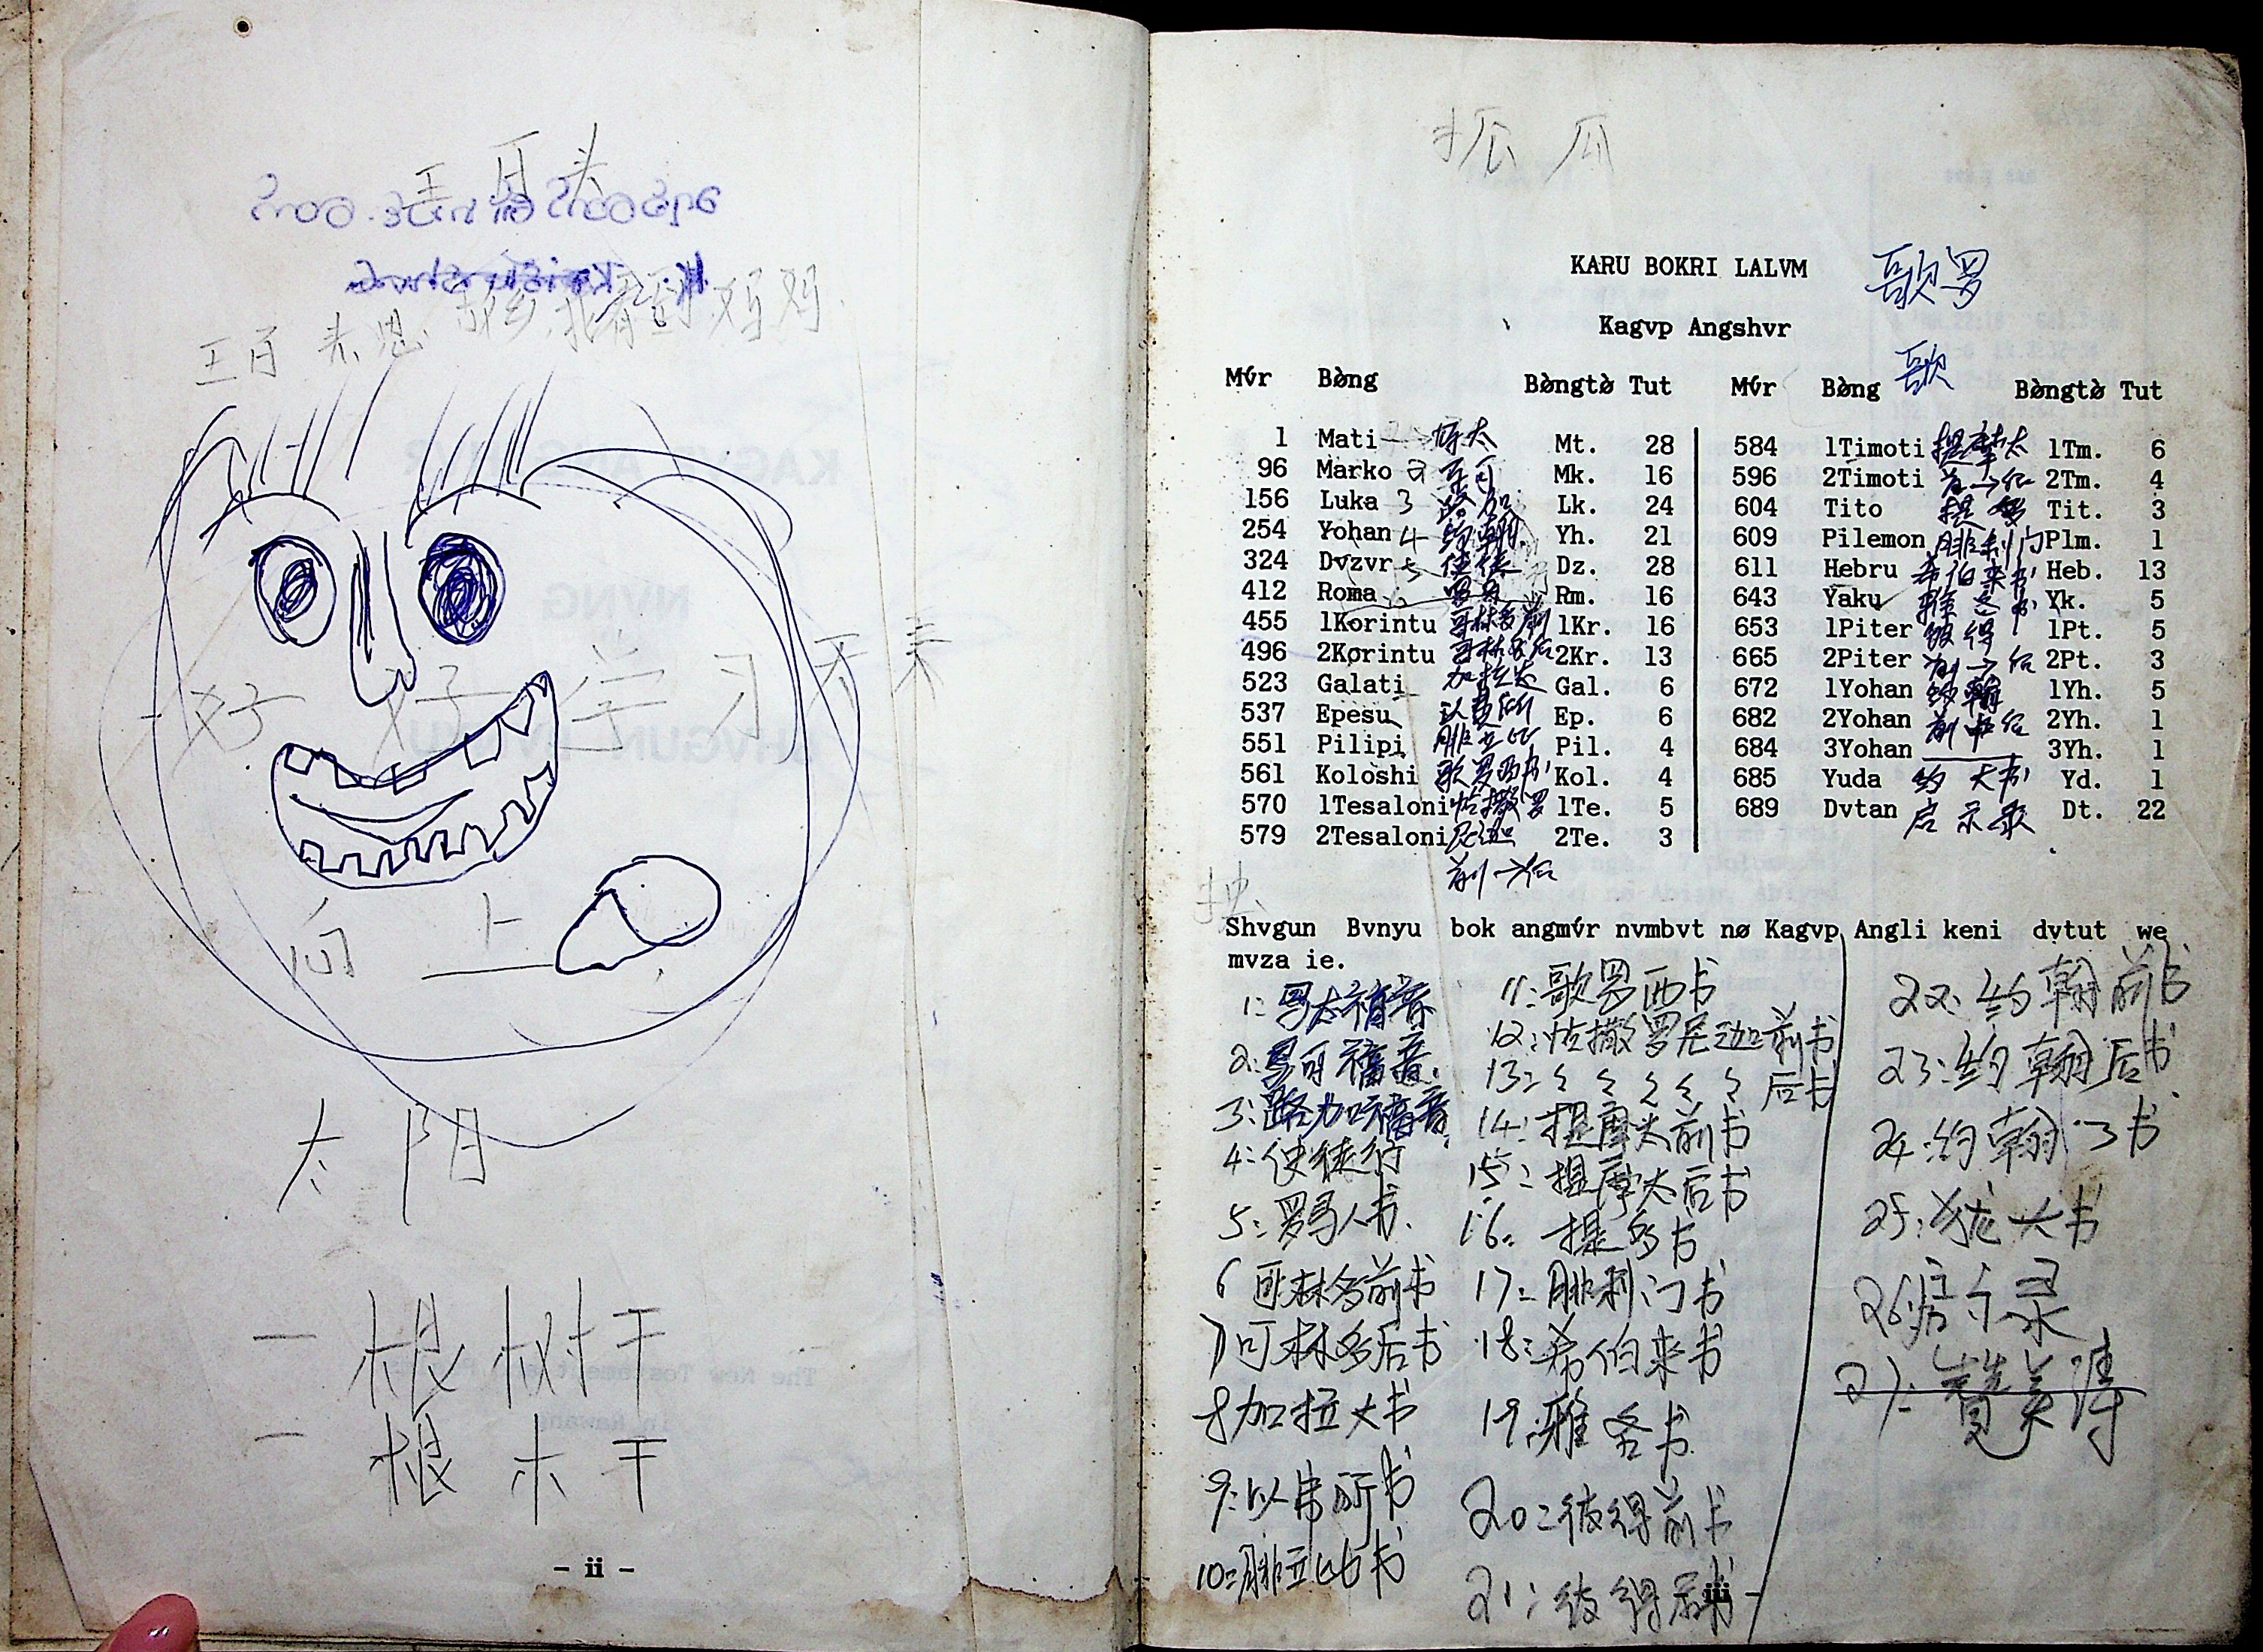 好 好 学 习 天
向 上
太 阳
一 根 树 干
一 根 木 干
- ii -
抓 瓜
KARU BOKRI LALVM 歌罗
Kagvp Angshvr
歌
Mv́r Bø̀ng Bø̀ngtø̀ Tut Mv́r Bø̀ng Bø̀ngtø̀ Tut
1 Mati 马太 Mt. 28 584 1Timoti 提摩太 1Tm. 6
96 Marko 2 马可 Mk. 16 596 2Timoti 前→后 2Tm. 4
156 Luka 3 路加 Lk. 24 604 Tito 提多 Tit. 3
254 Yohan 4 约翰 Yh. 21 609 Pilemon 腓利门 Plm. 1
324 Dvzvr 5 使徒 Dz. 28 611 Hebru 希伯来书 Heb. 13
412 Roma 6 罗马 Rm. 16 643 Yaku 雅各书 Yk. 5
455 1Korintu 哥林多前 1Kr. 16 653 1Piter 彼得 1Pt. 5
496 2Korintu 哥林多后 2Kr. 13 665 2Piter 前→后 2Pt. 3
523 Galati 加拉太 Gal. 6 672 1Yohan 约翰 1Yh. 5
537 Epesu 以弗所 Ep. 6 682 2Yohan 前中后 2Yh. 1
551 Pilipi 腓立比 Pil. 4 684 3Yohan 3Yh. 1
561 Koloshi 歌罗西书 Kol. 4 685 Yuda 约大书 Yd. 1
570 1Tesaloni 帖撒罗 1Te. 5 689 Dvtan 启示录 Dt. 22
579 2Tesaloni 尼迦 2Te. 3
前→后
Shvgun Bvnyu bok angmv́r nvmbvt nø Kagvp Angli keni dvtut we
mvza ie.
1: 马太福音
2: 马可福音.
3: 路加福音
4: 使徒行
5: 罗马人书.
6 哥林多前书
7 哥林多后书
8 加拉太书
9: 以弗所书
10: 腓立比书
11: 歌罗西书
12: 帖撒罗尼迦前书
13: 〻 〻 〻 〻 〻 后书
14: 提摩太前书
15: 提摩太后书
16: 提多书
17: 腓利门书
18: 希伯来书
19: 雅各书
20: 彼得前书
21: 彼得后书
iii -
22: 约翰前书
23: 约翰后书
24: 约翰3书
25: 犹大书
26: 启示录
27: 赞美诗